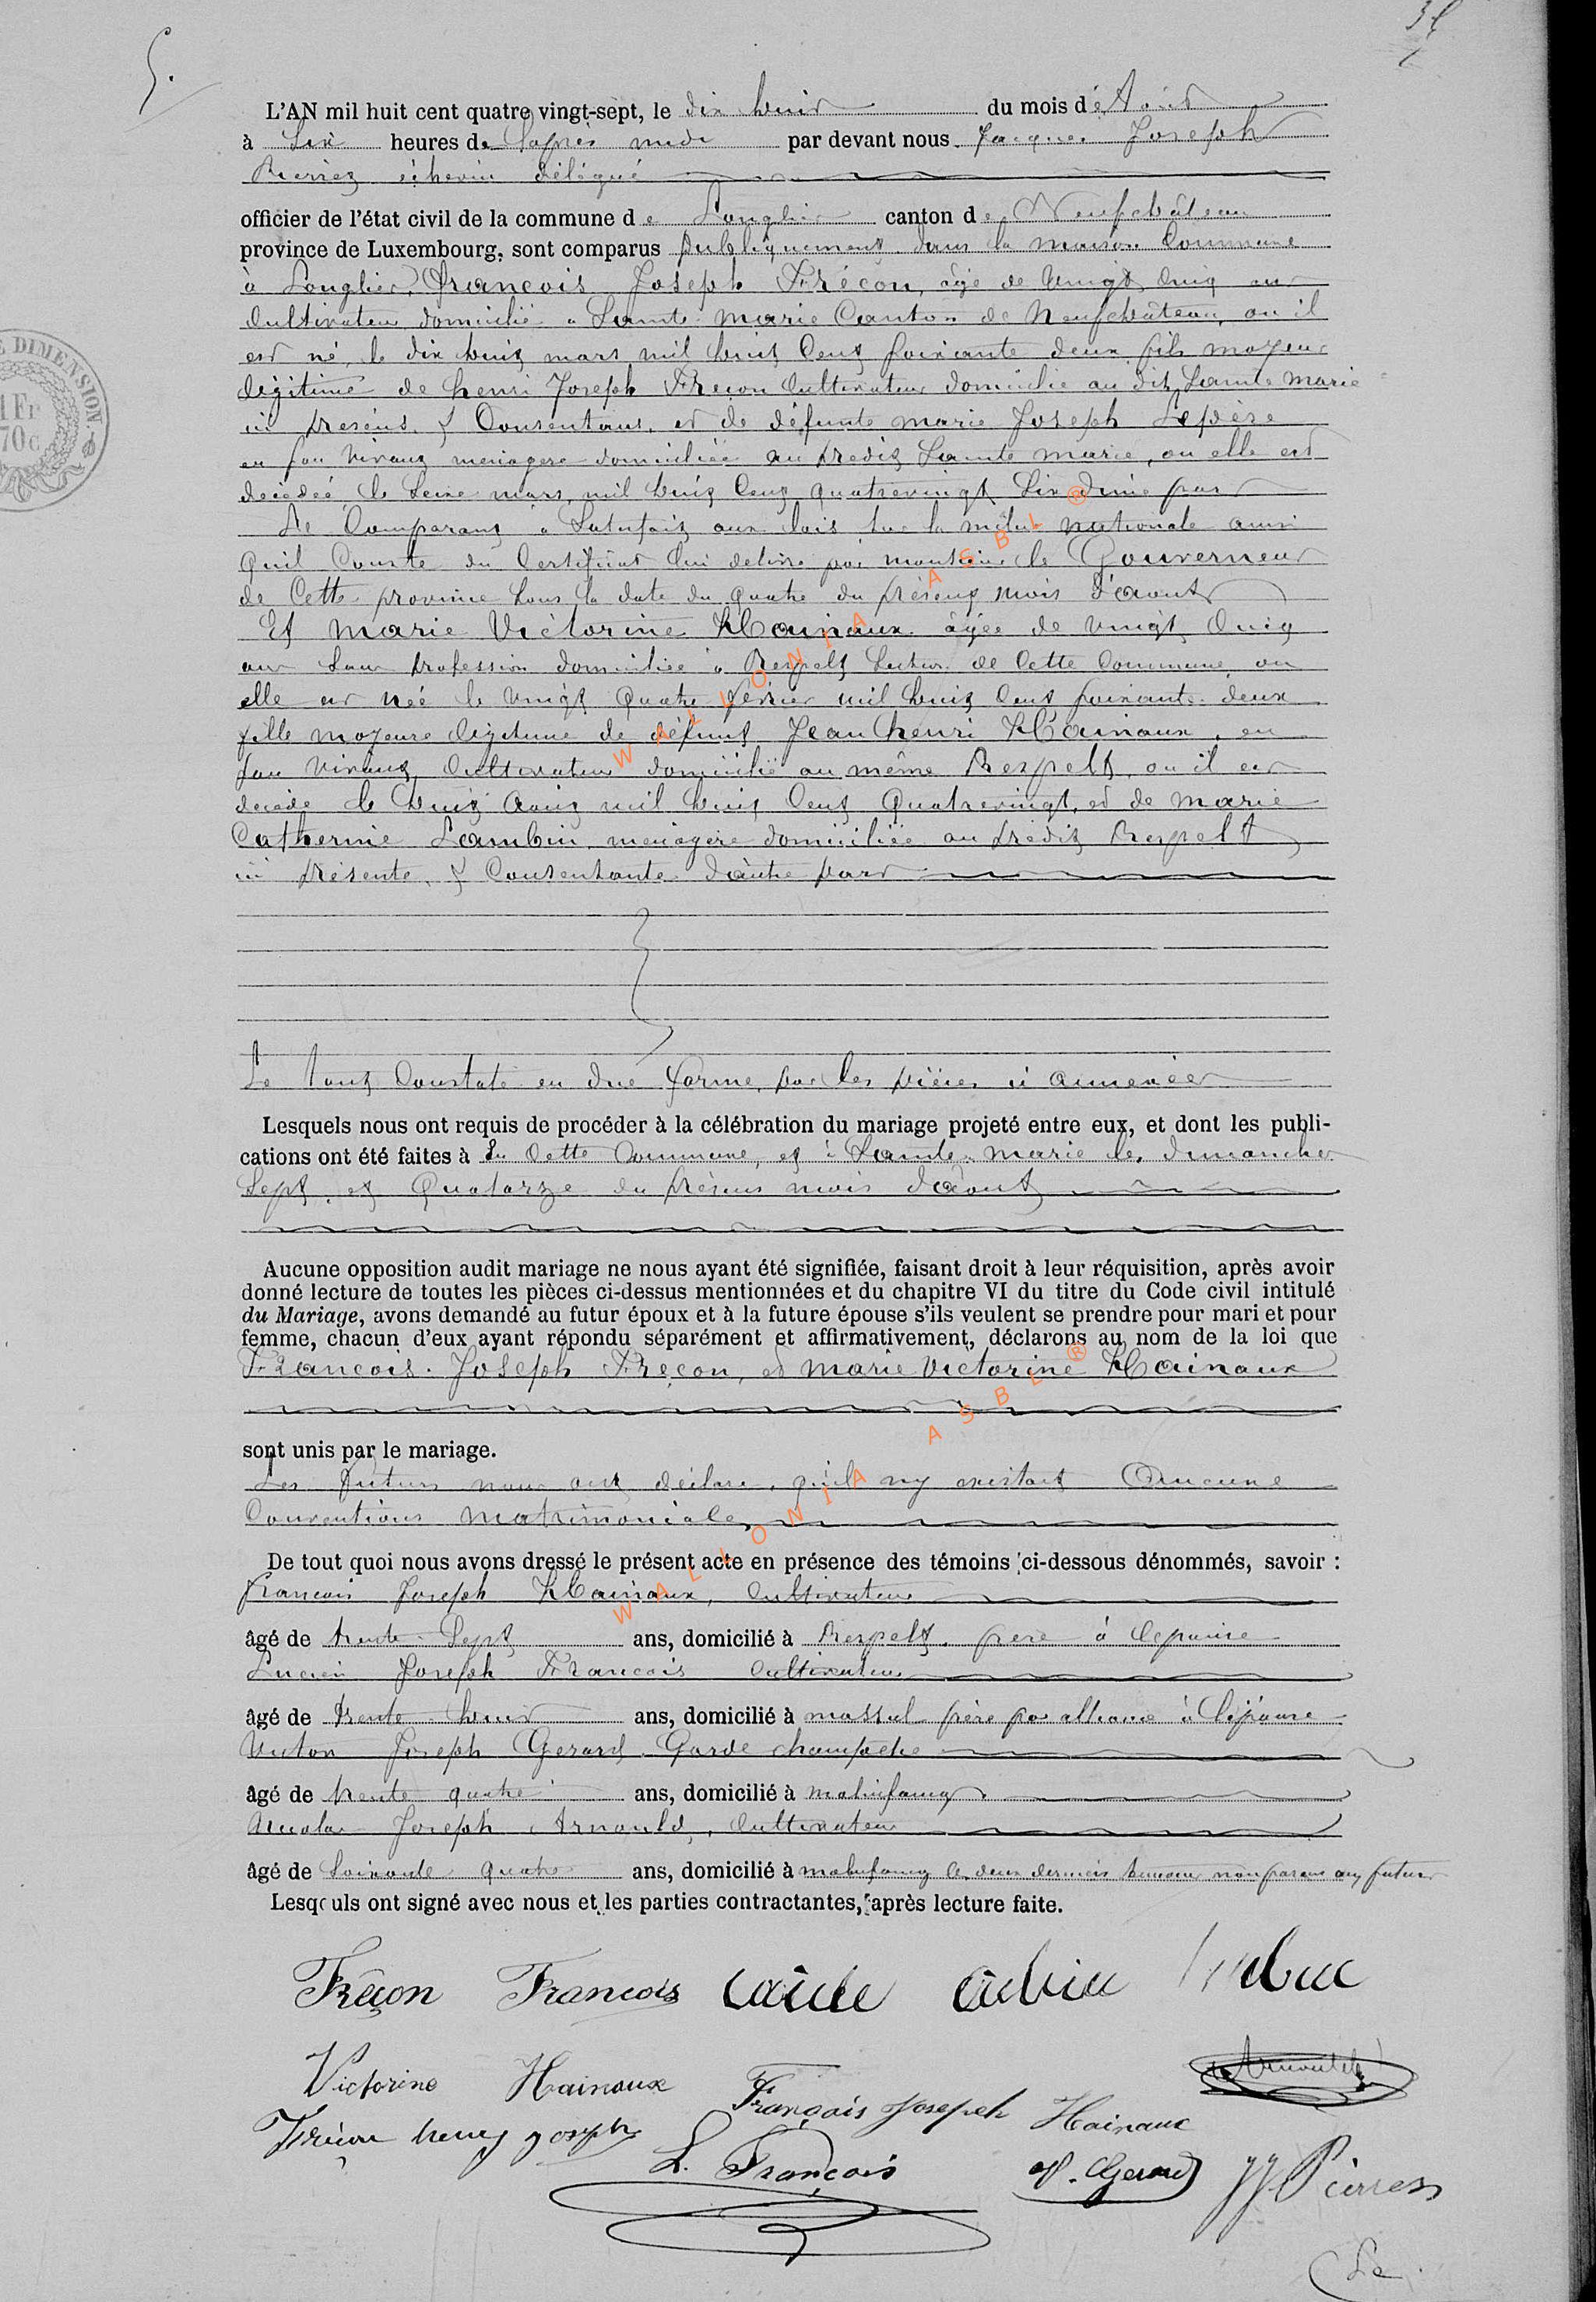 5.
L'AN mil huit cent quatre vingt-sept, le dix huit du mois d'Août
à Six heures de l'après midi par devant nous Jacques Joseph
Pierrez échevin délégué
officier de l'état civil de la commune de Longlier canton de Neufchâteau
province de Luxembourg, sont comparus publiquement dans la maison Commune
à Longlier, François Joseph Fréçon, âgé de vingt cinq ans
Cultivateur domicilié à Sainte Marie Canton de Neufchâteau, ou il
est né, le dix huit mars mil huit cent soixante deux, fils majeur
légitime de henri Joseph Freçon Cultivateur domicilié au dit Sainte Marie
ici présent & Consentant, et de défunte marie Joseph Lepère
en son vivant menagere domiciliée au prédit Sainte Marie, ou elle est
décédée le Seize mars, mil huit Cent quatrevingt Six d'une part
Le Comparant a Satisfait aux lois sur la milice nationale ainsi
qu'il Conste du Certificat lui delivré par monsieur le Gouverneur
de Cette province sous la date du quatre du présent mois d'aout
Et Marie Victorine Hainaux âgée de vingt Cinq
ans sans profession domiciliée à Respelt Section de Cette Commune ou
elle est née le vingt quatre février mil huit Cent soixante deux
fille majeure légitime de défunt Jean henri Hainaux, en
son vivant, Cultivateur domicilié au même Respelt, ou il est
décédé le huit Aout mil huit Cent Quatrevingt, et de Marie
Catherine Lambin, menagère domiciliée au prédit Respelt
ici présente, & Consentante d'autre part
Le tout Constaté en due forme, par les pièces ci annexées
Lesquels nous ont requis de procéder à la célébration du mariage projeté entre eux, et dont les publi-
cations ont été faites à En Cette Commune, et à Sainte Marie les dimanches
Sept, et Quatorze du présent mois d'aout
Aucune opposition audit mariage ne nous ayant été signifiée, faisant droit à leur réquisition, après avoir
donné lecture de toutes les pièces ci-dessus mentionnées et du chapitre VI du titre du Code civil intitulé
du Mariage, avons demandé au futur époux et à la future épouse s'ils veulent se prendre pour mari et pour
femme, chacun d'eux ayant répondu séparément et affirmativement, déclarons au nom de la loi que
François Joseph Freçon, et Marie Victorine Hainaux
sont unis par le mariage.
Les futurs nous ont déclaré, qu'il n'y existait Aucune
Conventions Matrimoniales
De tout quoi nous avons dressé le présent acte en présence des témoins ci-dessous dénommés, savoir :
François Joseph Hainaux, Cultivateur
âgé de trente Sept ans, domicilié à Respelt, frère à l'epouse
Lucien Joseph François Cultivateur
âgé de trente huit ans, domicilié à massul frère par alliance à l'épouse
Victor Joseph Gerard Garde champetre
âgé de trente quatre ans, domicilié à molinfaing
Nicolas Joseph Arnould, Cultivateur
âgé de Soixante quatre ans, domicilié à molinfaing les deux derniers témoins non parens aux futurs
Lesquels ont signé avec nous et les parties contractantes, après lecture faite.
Freçon François
Victorine Hainaux François Joseph Hainaux Arnould
Freçon henry joseph L. François V. Gerard JJ Pierrez
WALLONIA ASBL ®
WALLONIA ASBL ®
DIMENSION
1 Fr
70c